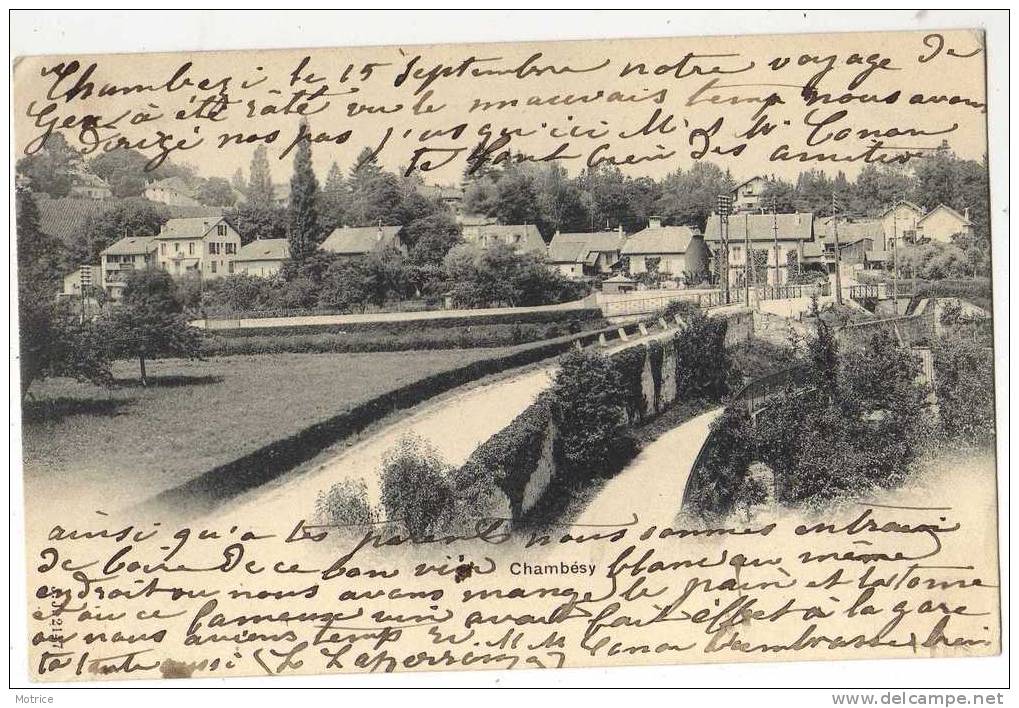 Chambezi le 15 Septembre notre voyage de
Gex à été râté vu le mauvais temp nous avons
dirigé nos pas j'usqu'ici Mr & Mme Conan
te font bien des amitiés
ainsi qu'a tes parents nous sommes entrain
de boire de ce bon vin blanc au même
endroit ou nous avons mangé le pain et la tome
et ou ce fameux vin avait fait effet à la gare
ou nous avions temp
Conan t'embrasse bien
ta tante aussi
Chambésy
Motrice
www.delcampe.net